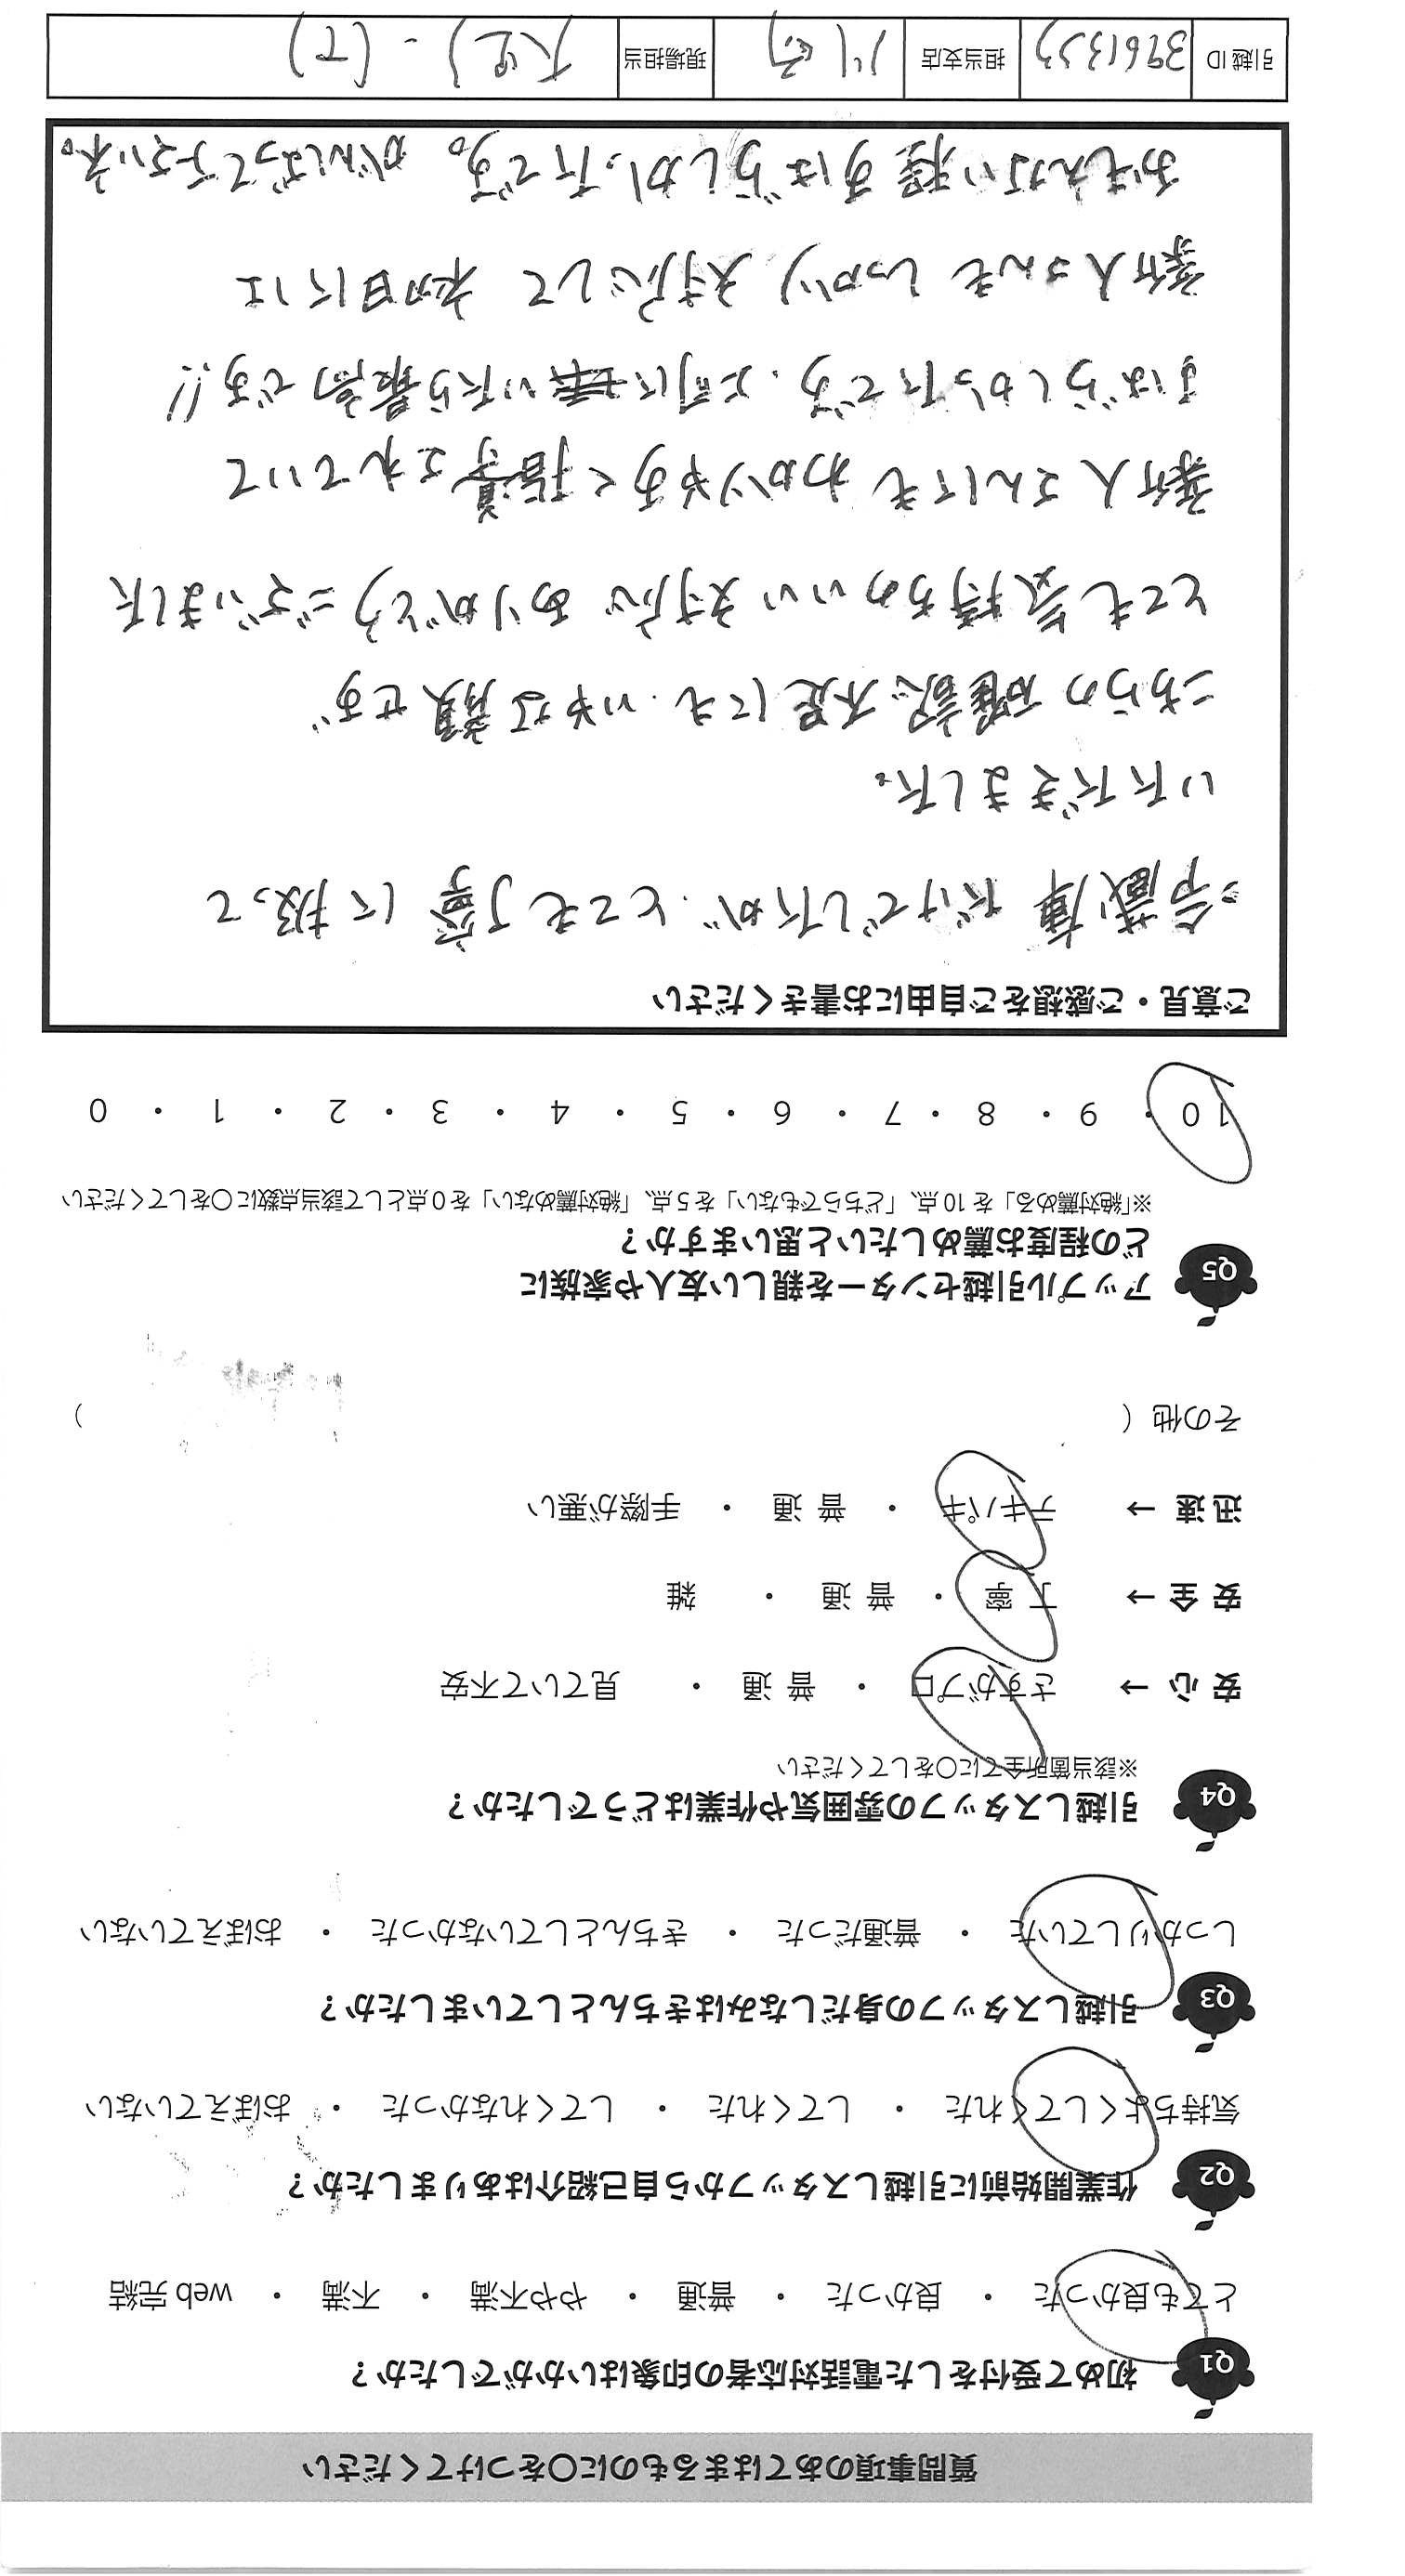 質問事項のあてはまるものに○をつけてください
Q1 初めて受付をした電話対応者の印象はいかがでしたか？
とても良かった ・ 良かった ・ 普通 ・ やや不満 ・ 不満 ・ web 完結
Q2 作業開始前に引越しスタッフから自己紹介はありましたか？
気持ちよくしてくれた ・ してくれた ・ してくれなかった ・ おぼえていない
Q3 引越しスタッフの身だしなみはきちんとしていましたか？
しっかりしていた ・ 普通だった ・ きちんとしていなかった ・ おぼえていない
Q4 引越しスタッフの雰囲気や作業はどうでしたか？
※該当箇所全てに○をしてください
安 心 → さすがプロ ・ 普 通 ・ 見ていて不安
安 全 → 丁 寧 ・ 普 通 ・ 雑
迅 速 → テキパキ ・ 普 通 ・ 手際が悪い
その他（ ）
Q5 アップル引越センターを親しい友人や家族に
どの程度お薦めしたいと思いますか？
※「絶対薦める」を 10 点、「どちらでもない」を 5 点、「絶対薦めない」を 0 点として該当点数に○をしてください
10 ・ 9 ・ 8 ・ 7 ・ 6 ・ 5 ・ 4 ・ 3 ・ 2 ・ 1 ・ 0
ご意見・ご感想をご自由にお書きください
冷蔵庫だけでしたが、とても丁寧に扱って
いただきました。
こちらの確認不足にも、いやな顔せず
とても気持ちのいい対応ありがとうございました
新人さんにもわかりやすく指導されていて
すばらしかったです。上司に
いたら最高です!!
新人さんもしっかり対応して初日には
おもえない程すばらしかったです。がんばって下さいネ。
引越 ID
担当支店 川崎
現場担当